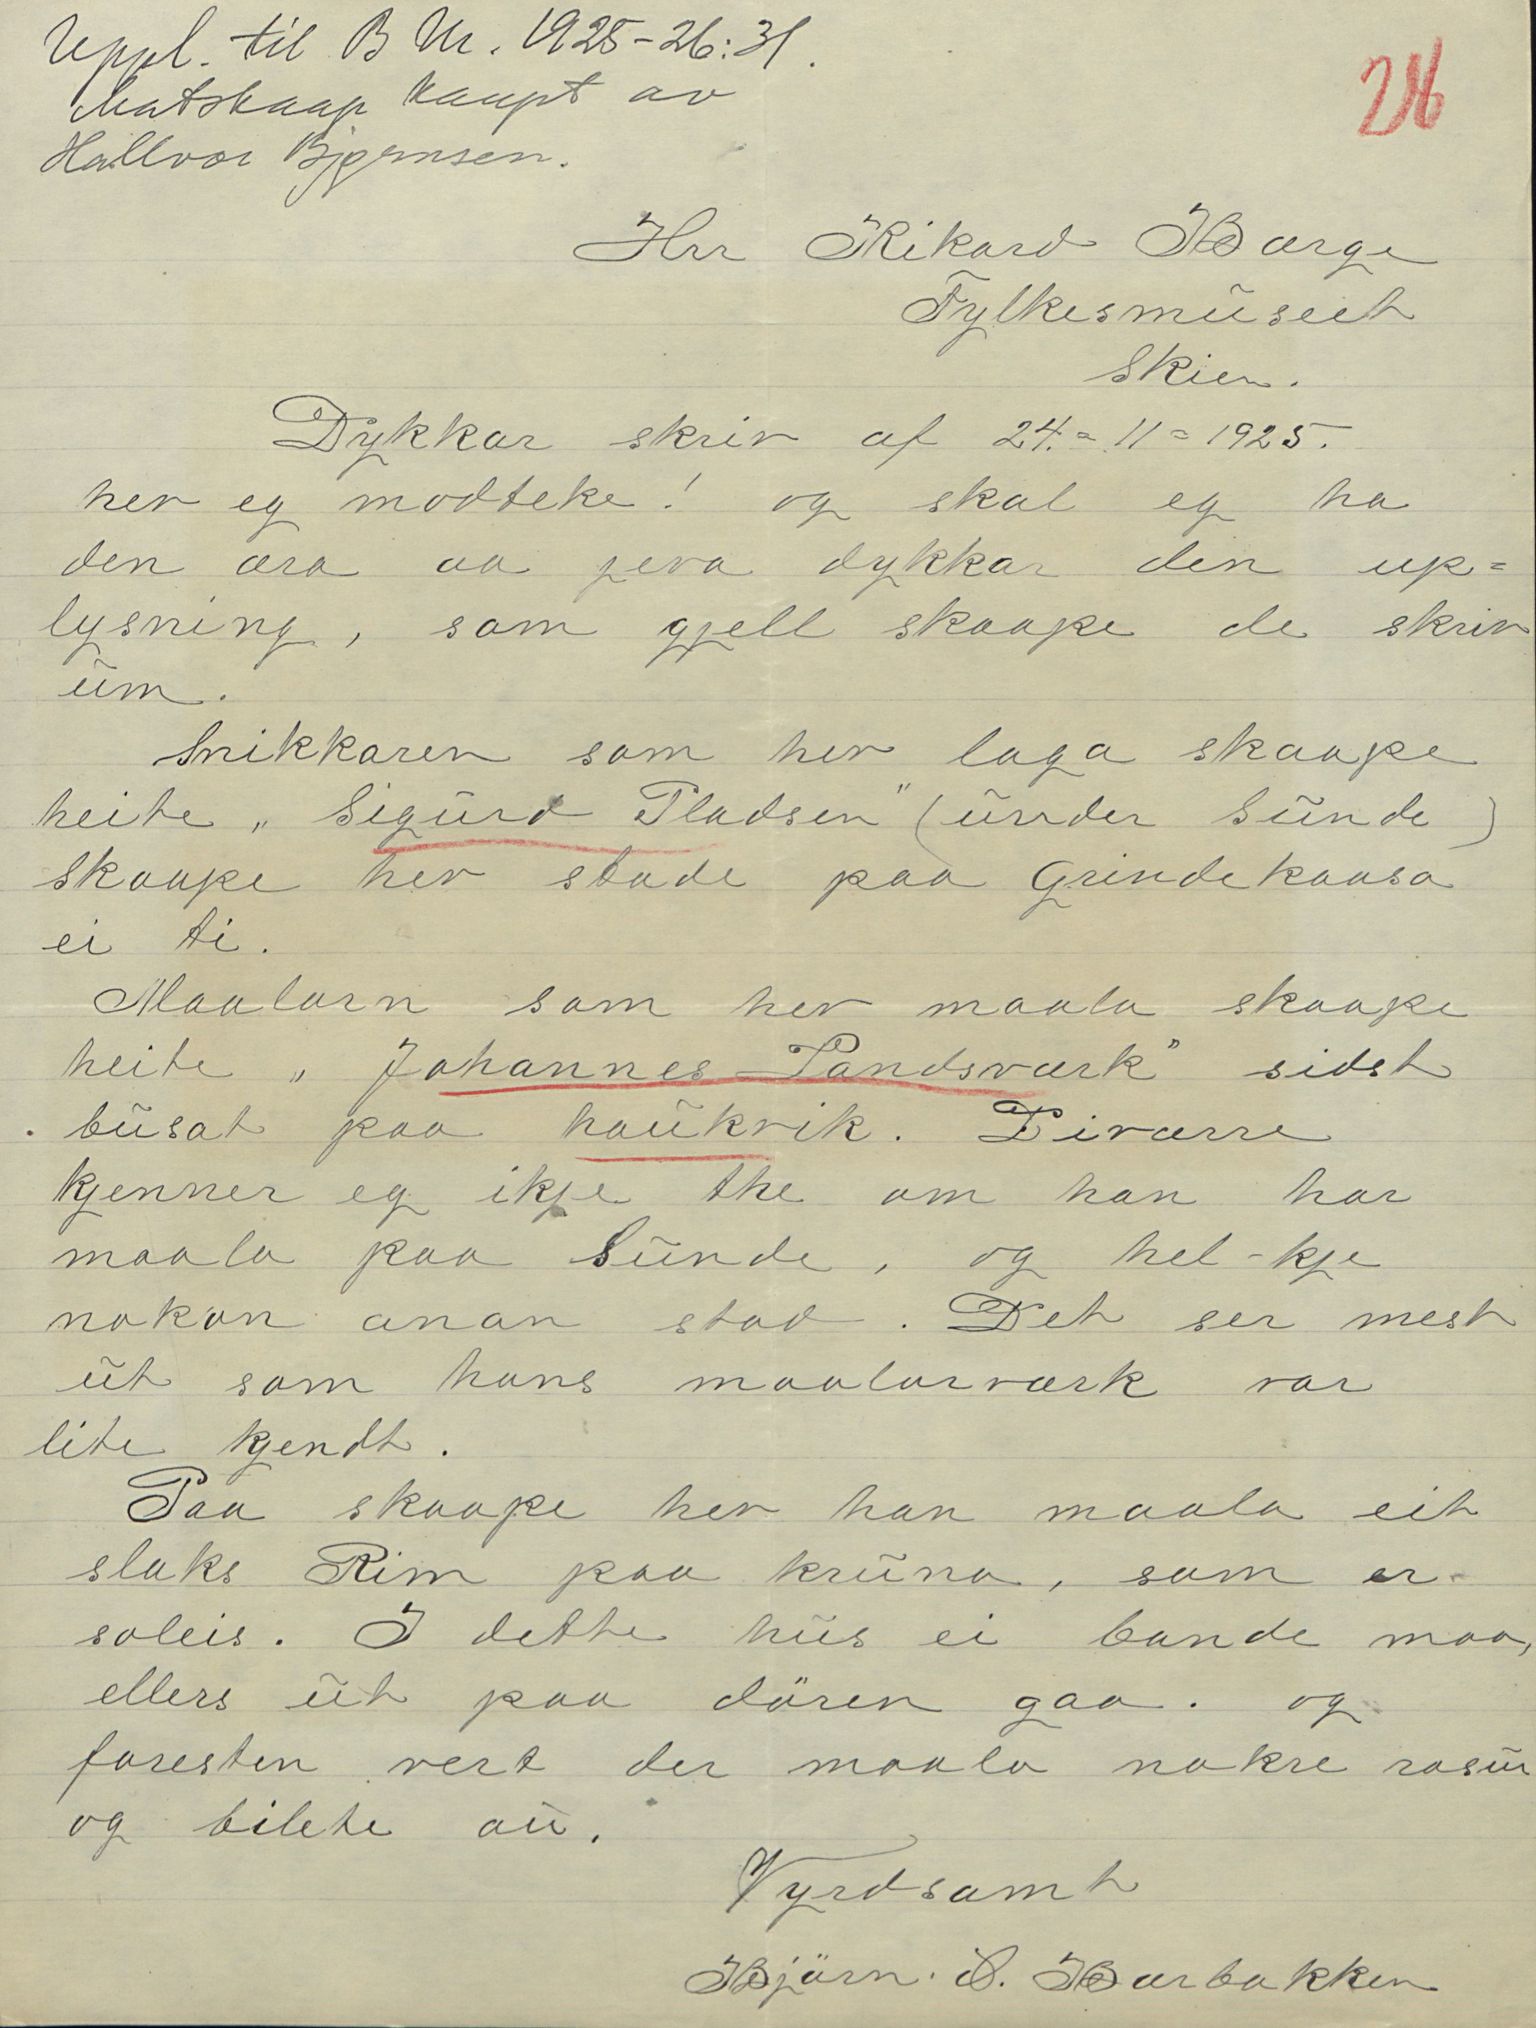 Uppl. til B M. 1925-26:31.
Matskaap kaupt av
Hallvor Bjørnsen.
28
Hrr Rikard Bærge
Fylkesmŭseet
Skien.
Dykkar skriv af 24.=11=1925.
hev eg modteke! og skal eg ha
den æra aa jeva dykkar den up=
lysning, som gjell skaape de skriv
ŭm.
Snikkaren som hev laga skaape
heite „Sigŭrd Pladsen" (ŭnder Sŭnde)
Skaape hev stade paa Grindekaasa
ei ti.
Maalarn som hev maala skaape
heite „Johannes Landsværk" sidst
bŭsat paa haŭkvik. Diværre
kjenner eg ikje the om han har
maala paa Sŭnde, og hel-kje
nokon anan stad. Det ser mest
ŭt som hans maalarværk var
lite kjendt.
Paa skaape hev han maala eit
slaks Rim paa krŭna, som er
soleis. I dette hŭs ei bande maa,
ellers ŭt paa dören gaa. og
foresten vert der maala nokre rosŭr
og bilete aŭ.
Vyrdsamt
Björn. O. Bærbakken